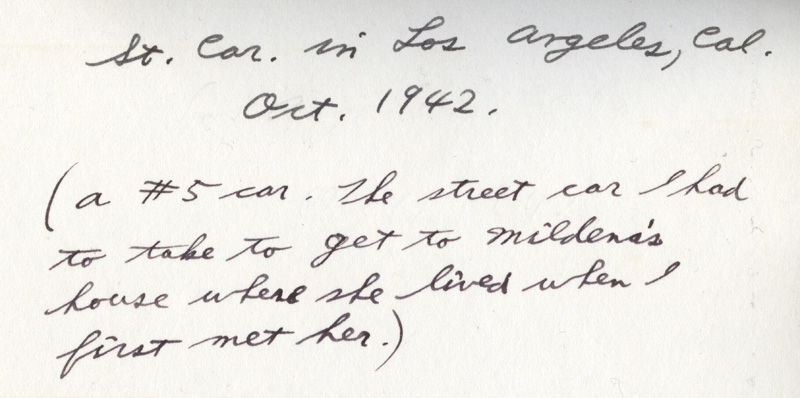 St. Car. in Los Angeles, Cal.
Oct. 1942.
(a #5 car. The street car I had
to take to get to Mildena's
house where she lived when I
first met her.)